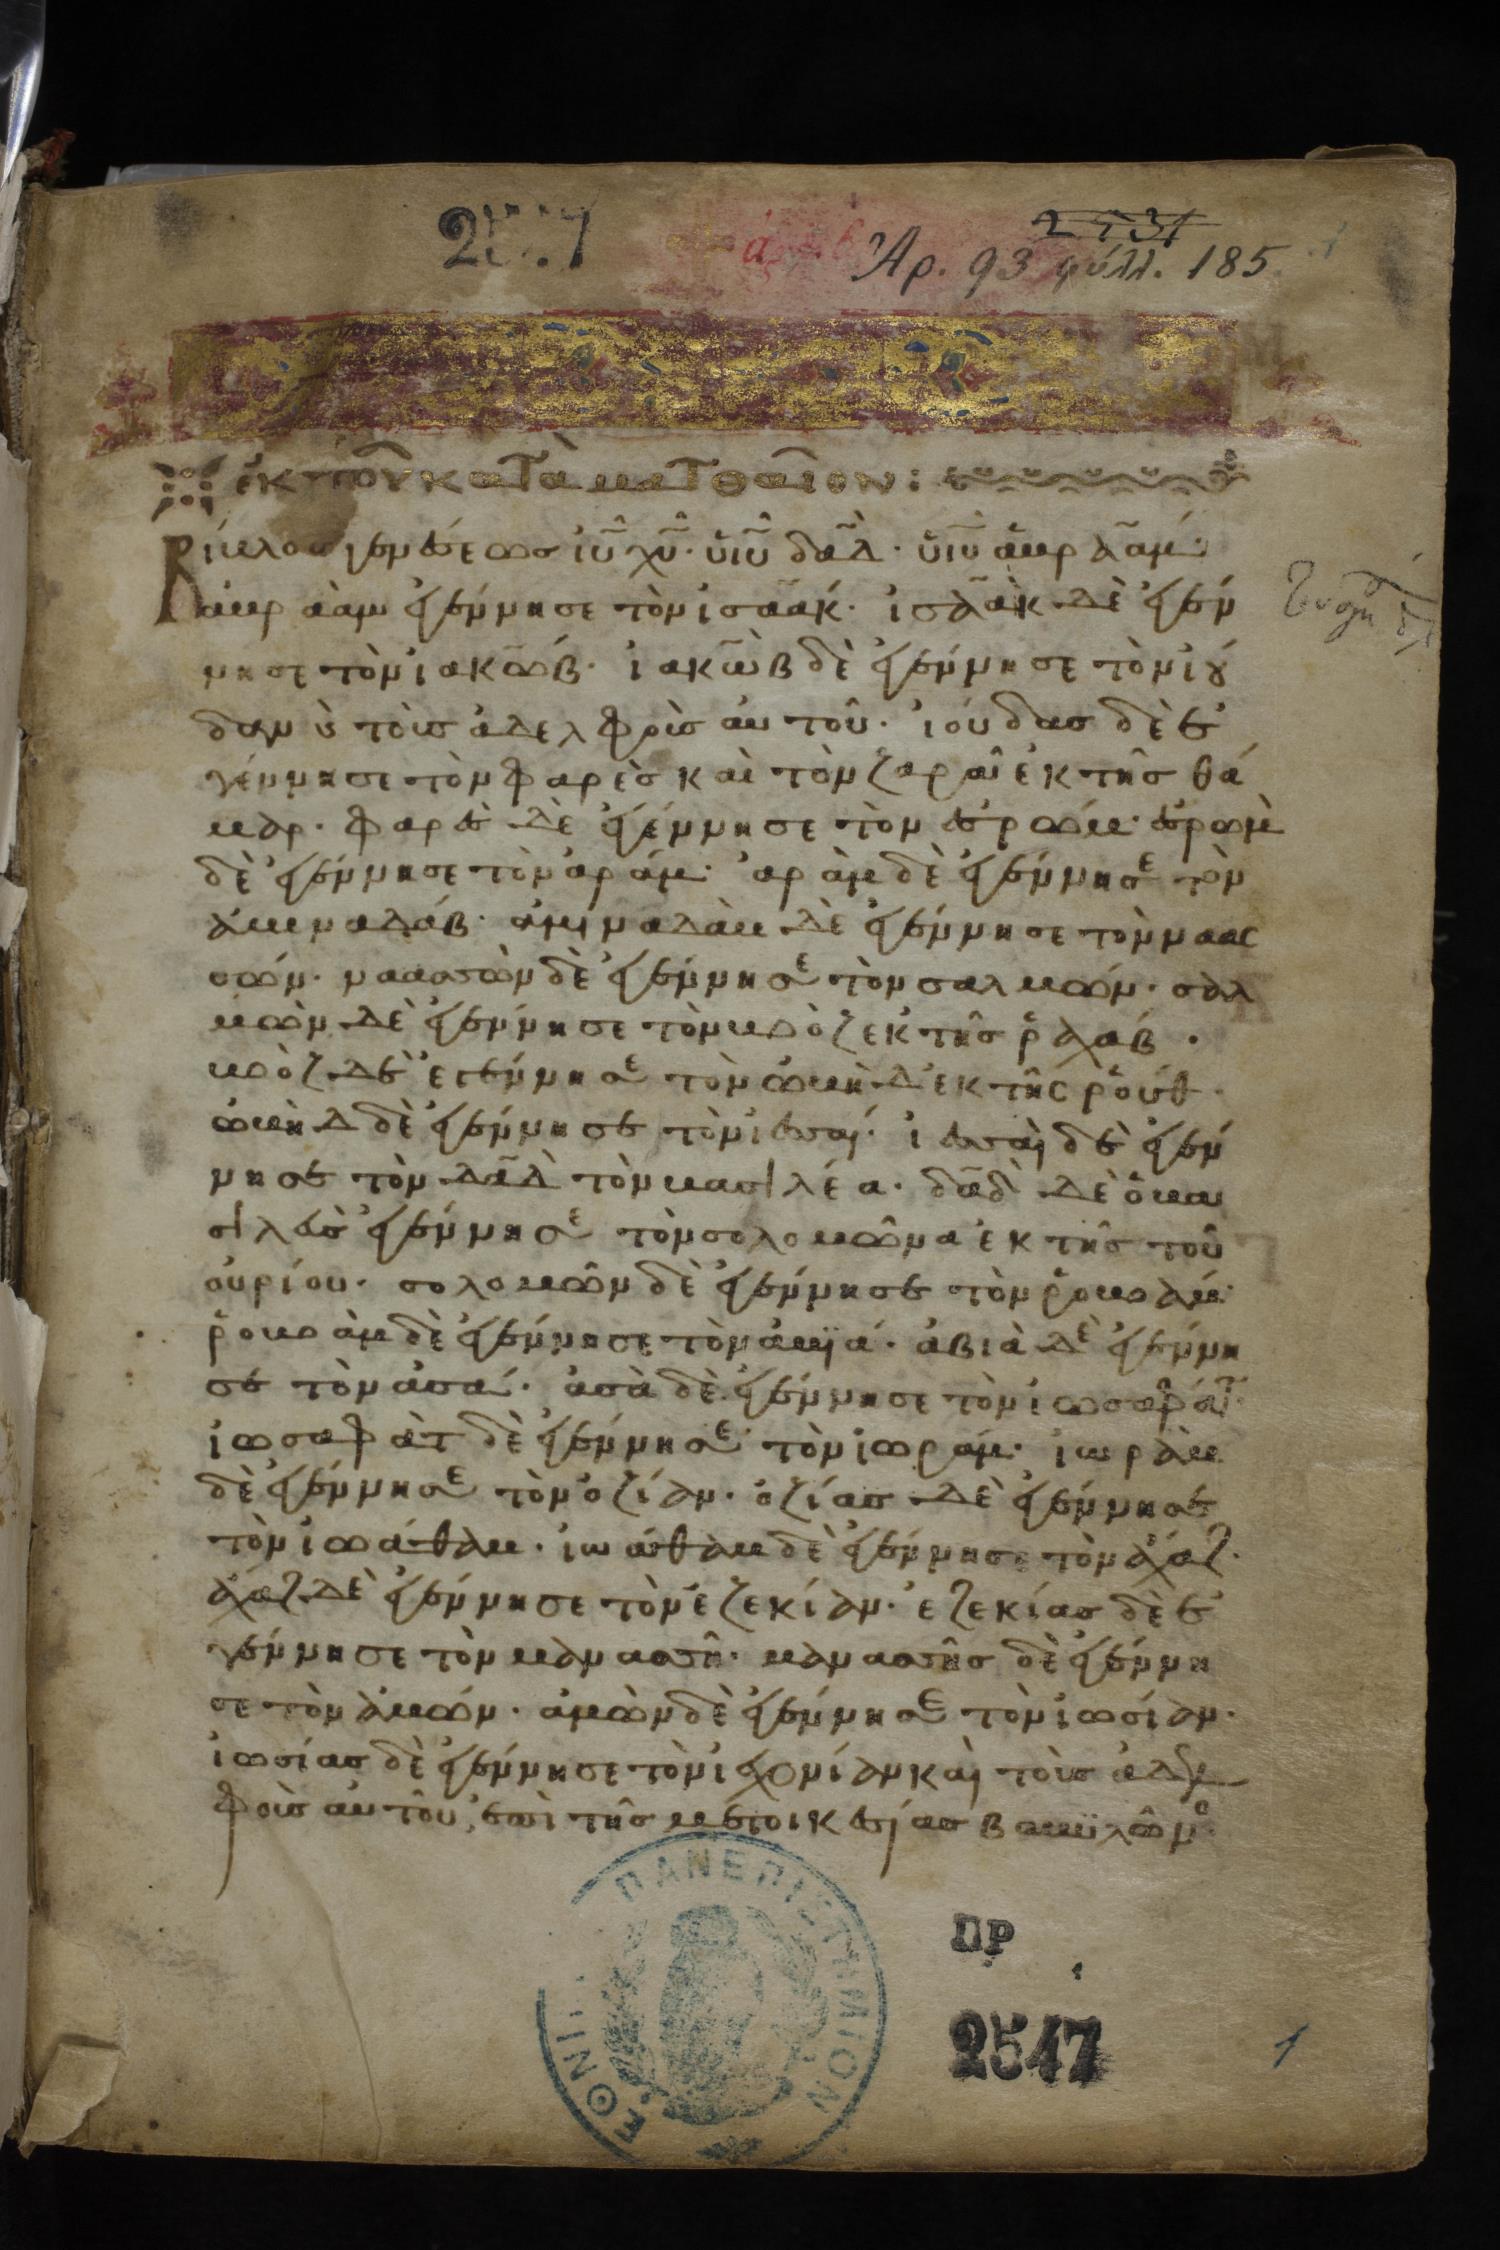 2547
2431
Ἀρ. 93 φύλλ. 185
ἐκ τοῦ κατὰ ματθαῖον:
Βίβλος γενέσεως ἰῦ χῦ. ὑιῦ δαδ. ὑιῦ ἀβραάμ.
ἀβραὰμ ἐγέννησε τὸν ἰσαάκ. ἰσαὰκ δὲ ἐγέν
νησε τὸν ἰακώβ. ἰακὼβ δὲ ἐγέννησε τὸν ἰού
δαν κ τοὺς ἀδελφοὺς αυτοῦ. ἰούδας δὲ ἐ
γέννησε τὸν φαρὲς καὶ τὸν ζαρὰ ἐκ τῆς θά
μαρ. φαρὲς δὲ ἐγέννησε τὸν ἐσρώμ. ἐσρὼμ
δὲ ἐγέννησε τὸν ἀράμ. ἀρὰμ δὲ ἐγέννησε τὸν
ἀμιναδάβ. ἀμιναδὰβ δὲ ἐγέννησε τὸν ναασ
σών. ναασσὼν δὲ ἐγέννησε τὸν σαλμών. σαλ
μὼν δὲ ἐγέννησε τὸν βοὸζ ἐκ τῆς ῥαχάβ.
βοὸζ δὲ ἐγέννησε τὸν ὠβὴδ ἐκ τῆς ῥούθ.
ὠβὴδ δὲ ἐγέννησε τὸν ἰεσαί. ἰεσαὶ δὲ ἐγέν
νησε τὸν δαδ τὸν βασιλέα. δαδ δὲ ὁ βα
σιλεὺς ἐγέννησε τὸν σολομῶνα ἐκ τῆς τοῦ
οὐρίου. σολομῶν δὲ ἐγέννησε τὸν ῥοβοάμ.
ῥοβοὰμ δὲ ἐγέννησε τὸν ἀβϊά. ἀβιὰ δὲ ἐγέννη
σε τὸν ἀσά. ἀσὰ δὲ ἐγέννησε τὸν ἰωσαφάτ.
ἰωσαφὰτ δὲ ἐγέννησε τὸν ἰωράμ. ἰωρὰμ
δὲ ἐγέννησε τὸν ὀζίαν. ὀζίας δὲ ἐγέννησε
τὸν ἰωάθαμ. ἰωάθαμ δὲ ἐγέννησε τὸν ἄχαζ.
ἄχαζ δὲ ἐγέννησε τὸν ἐζεκίαν. ἐζεκίας δὲ ἐ
γέννησε τὸν μανασσῆ. μανασσῆς δὲ ἐγέννη
σε τὸν ἀμών. ἀμὼν δὲ ἐγέννησε τὸν ἰωσίαν.
ἰωσίας δὲ ἐγέννησε τὸν ἰεχονίαν καὶ τοὺς ἀδελ
φοὺς αὐτοῦ, ἐπὶ τῆς μετοικεσίας βαβϋλῶνο
ΕΘΝΙΚ ΠΑΝΕΠΙΣΤΗΜΙΟΝ
ΠΡ
2547
1